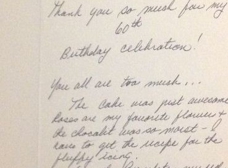 Thank you so much for my
60th
Birthday celebration!
You all are too much...
The cake was just awesome
Roses are my favorite flowers &
the chocolate was so moist - I
have to get the recipe for the
fluffy icing.